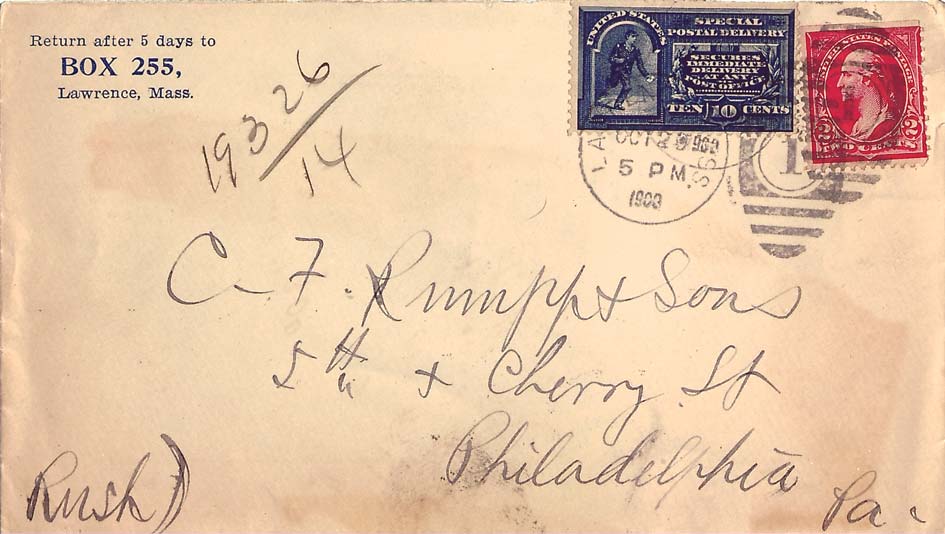 Return after 5 days to
BOX 255,
Lawrence, Mass.
19326/14
UNITED STATES
SPECIAL
POSTAL DELIVERY
SECURES
IMMEDIATE
DELIVERY
AT ANY
POST OFFICE
TEN 10 CENTS
UNITED STATES POSTAGE
2 2
TWO CENTS
OCT 2
5 PM
1
C. F. Rumpp & Sons
5th & Cherry St
Philadelphia
Pa.
Rush)